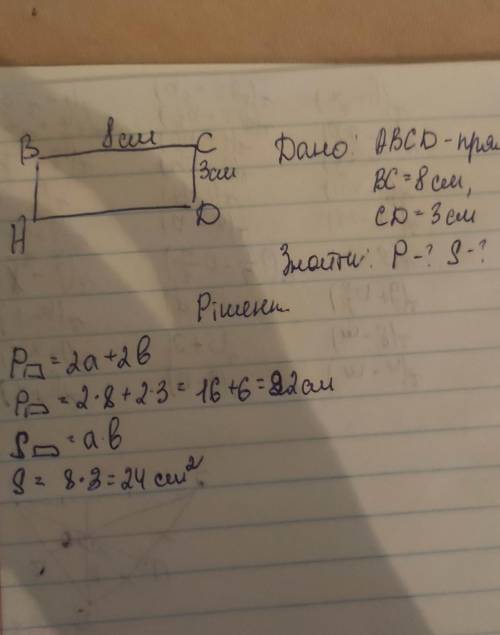 8см
B C
3см
A D
Дано: ABCD - прям
BC = 8 см,
CD = 3 см
Знайти: P - ? S - ?
Рішенн.
P▭ = 2a + 2b
P▭ = 2·8 + 2·3 = 16 + 6 = 22 см
S▭ = a·b
S = 8·3 = 24 см²